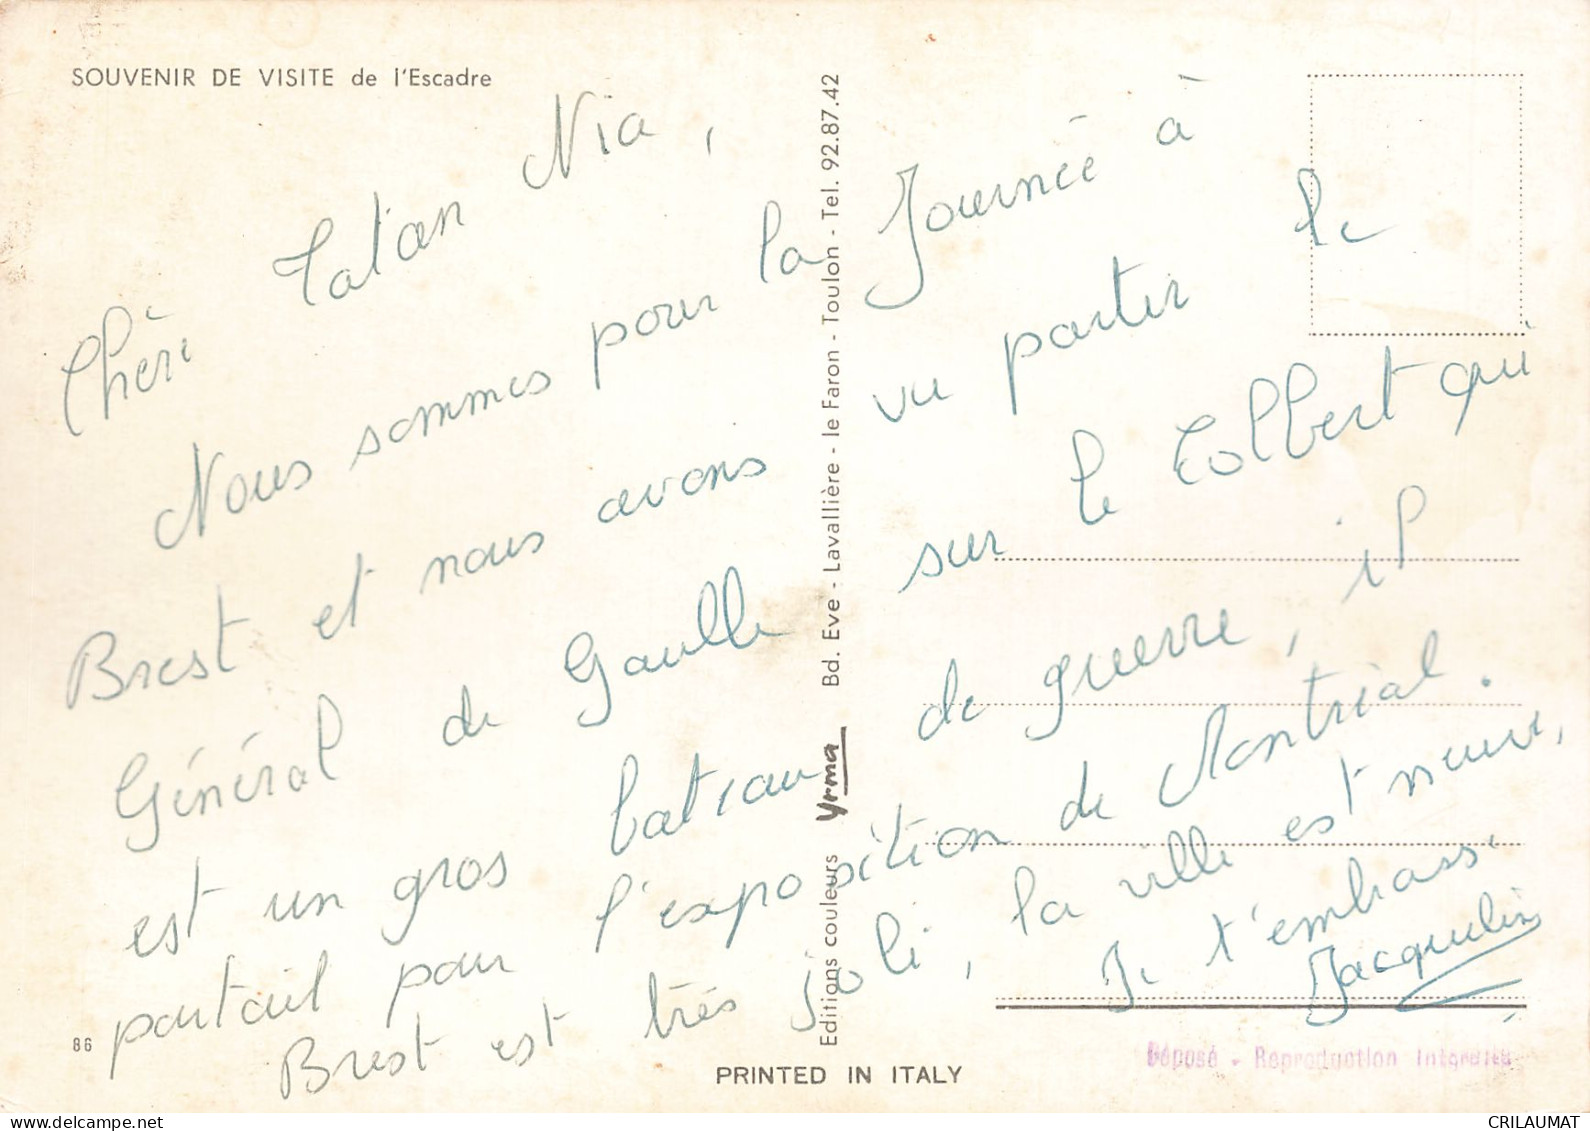 SOUVENIR DE VISITE de l'Escadre
Chère Tatan Nia,
Nous sommes pour la Journée à
Brest et nous avons vu partir le
Général de Gaulle sur le Colbert qui
est un gros bateau de guerre, il
partait pour l'exposition de Montréal.
Brest est très joli, la ville est neuve,
Je t'embrasse
Jacqueline
Editions couleurs Yrma Bd. Eve - Lavallière - le Faron - Toulon - Tel. 92.87.42
86
PRINTED IN ITALY
Déposé - Reproduction Intgrdite
CRILAUMAT